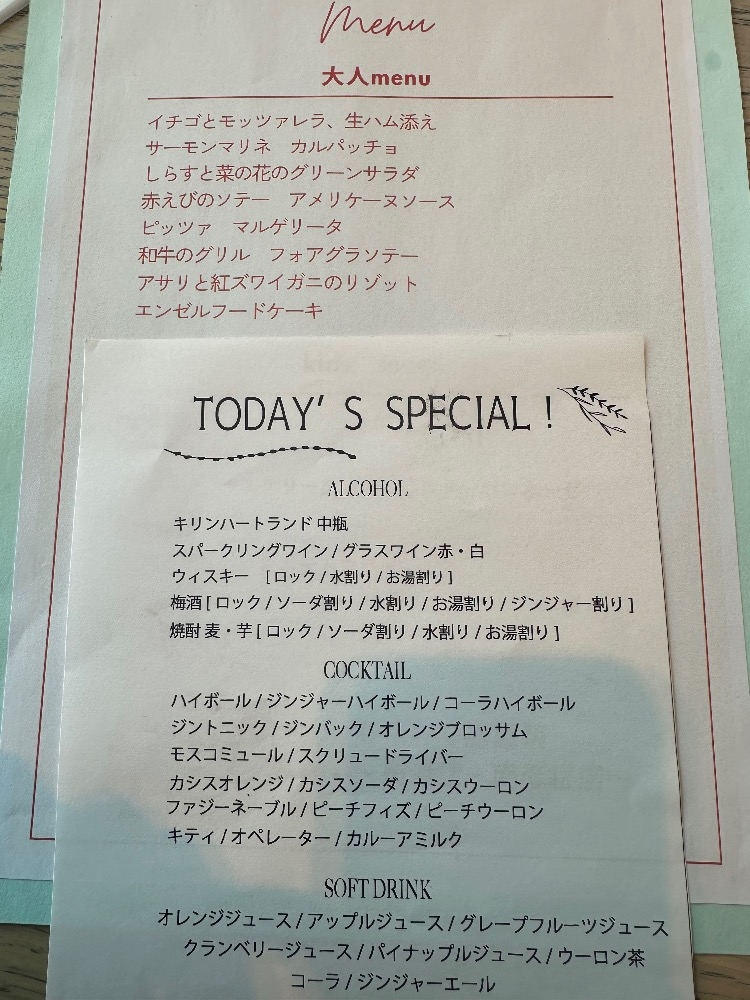 Menu
大人menu
イチゴとモッツァレラ、生ハム添え
サーモンマリネ　カルパッチョ
しらすと菜の花のグリーンサラダ
赤えびのソテー　アメリケーヌソース
ピッツァ　マルゲリータ
和牛のグリル　フォアグラソテー
アサリと紅ズワイガニのリゾット
エンゼルフードケーキ
TODAY' S SPECIAL !
ALCOHOL
キリンハートランド 中瓶
スパークリングワイン / グラスワイン赤・白
ウィスキー　[ ロック / 水割り / お湯割り ]
梅酒 [ ロック / ソーダ割り / 水割り / お湯割り / ジンジャー割り ]
焼酎 麦・芋 [ ロック / ソーダ割り / 水割り / お湯割り ]
COCKTAIL
ハイボール / ジンジャーハイボール / コーラハイボール
ジントニック / ジンバック / オレンジブロッサム
モスコミュール / スクリュードライバー
カシスオレンジ / カシスソーダ / カシスウーロン
ファジーネーブル / ピーチフィズ / ピーチウーロン
キティ / オペレーター / カルーアミルク
SOFT DRINK
オレンジジュース / アップルジュース / グレープフルーツジュース
クランベリージュース / パイナップルジュース / ウーロン茶
コーラ / ジンジャーエール